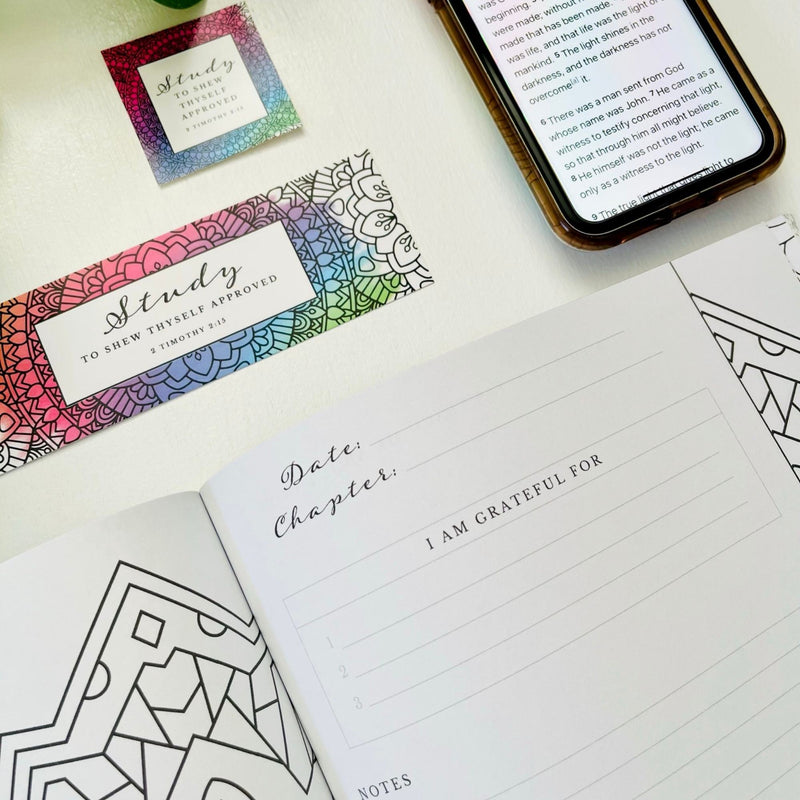 Study
TO SHEW
THYSELF
APPROVED
2 TIMOTHY 2:15
beginning.
were made; without
made that has been made.
was life, and that life was the light of
mankind. 5 The light shines in the
darkness, and the darkness has not
overcome[a] it.
6 There was a man sent from God
whose name was John. 7 He came as a
witness to testify concerning that light,
so that through him all might believe.
8 He himself was not the light; he came
only as a witness to the light.
9 The true light that gives light to
Study
TO SHEW THYSELF APPROVED
2 TIMOTHY 2:15
Date:
Chapter:
I AM GRATEFUL FOR
1
2
3
NOTES